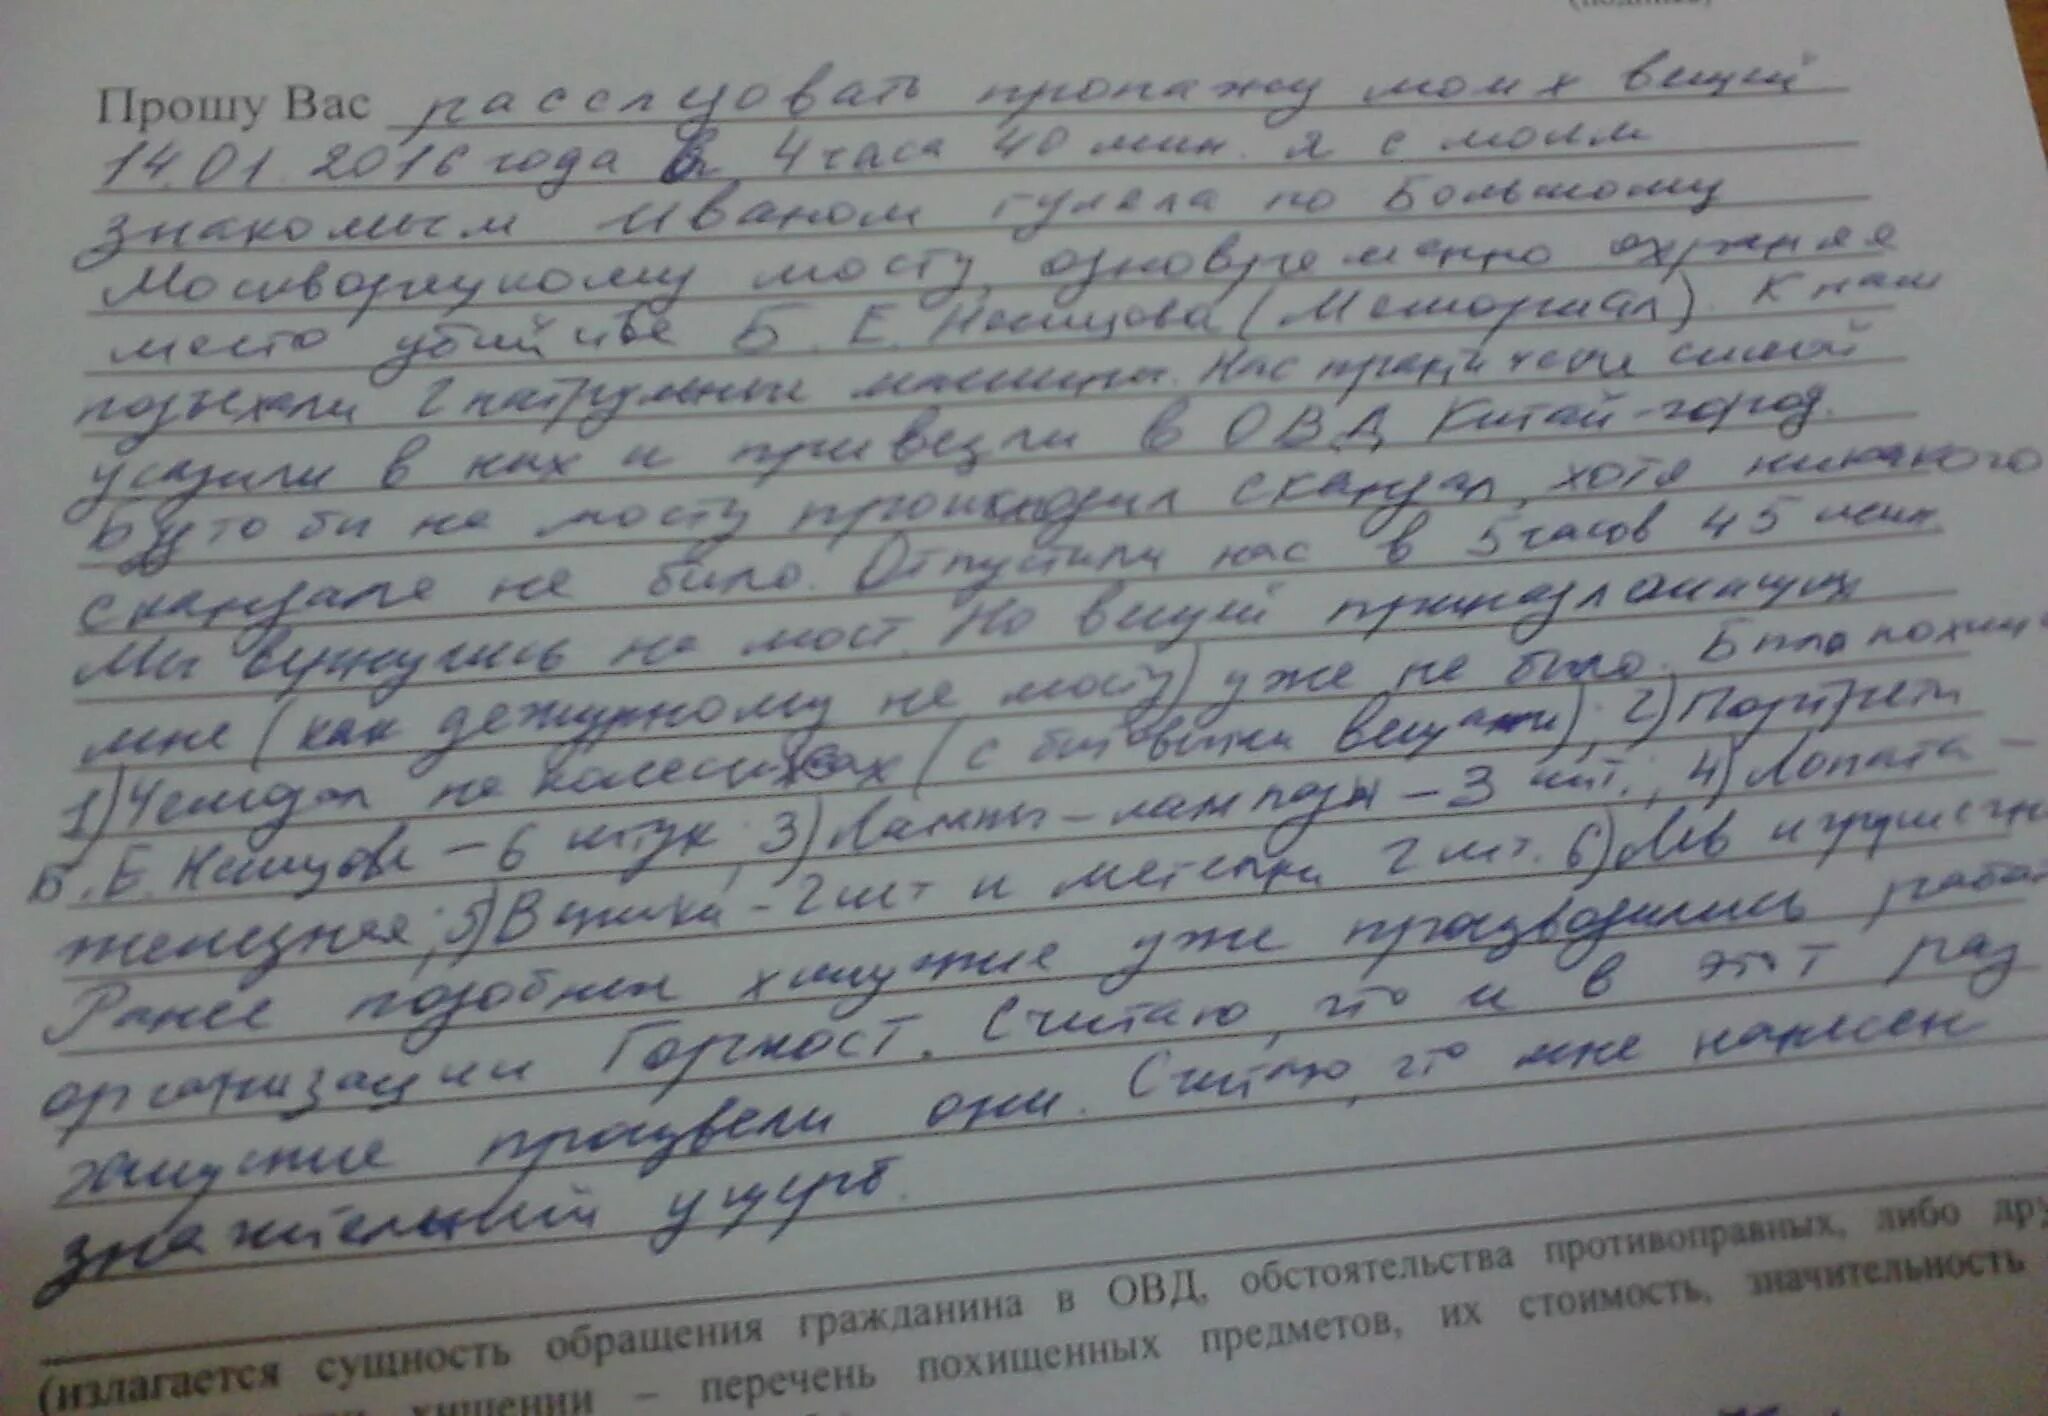 Прошу Вас расследовать пропажу моих вещей
14.01.2016 года в 4 часа 40 мин. я с моим
знакомым Иваном гуляла по Большому
Москворецкому мосту, одновременно охраняя
место убийства Б. Е. Немцова (Мемориал). К нам
подъехали 2 патрульные машины. Нас практически силой
усадили в них и привезли в ОВД Китай-город.
Будто бы на мосту происходил скандал, хотя никакого
скандала не было. Отпустили нас в 5 часов 45 мин.
Мы вернулись на мост. Но вещей принадлежащих
мне (как дежурному на мосту) уже не было. Было похище
1) Чемодан на колесиках (с бытовыми вещами); 2) Портрет
Б. Е. Немцова - 6 штук; 3) Лампы-лампады - 3 шт.; 4) Лопата -
железная; 5) Веники - 2 шт и метелки 2 шт. 6) Лев игрушечн
Ранее подобные хищения уже производились работ
организации Гормост. Считаю, что и в этот раз
хищение произвели они. Считаю, что мне нанесен
значительный ущерб.
(излагается сущность обращения гражданина в ОВД, обстоятельства противоправных, либо дру
хищении – перечень похищенных предметов, их стоимость, значительность